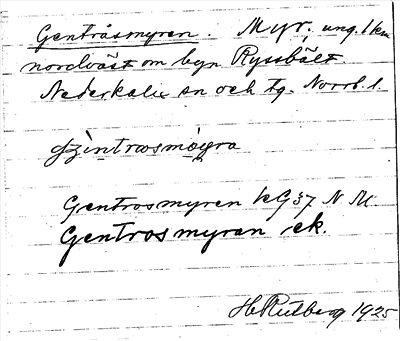 Genträsmyren. Myr, ung. 1 km
nordväst om byn Ryssbält
Nederkalix sn och tg. Norrb. l.
Gentrosmyren kG 37 N M
Gentrosmyran ek.
H. Rutberg 1925